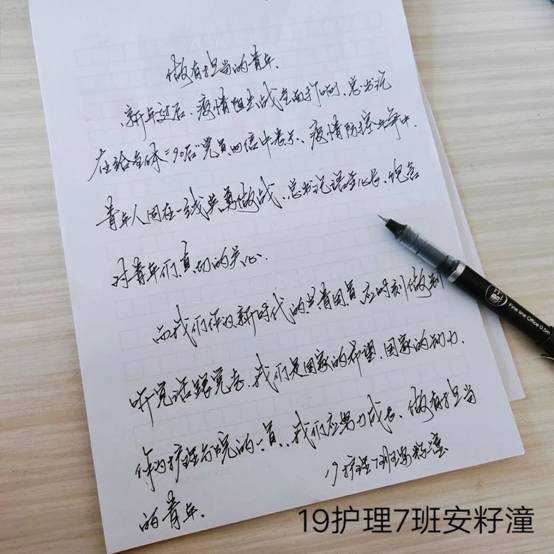 做有担当的青年.
新年过后,疫情阻击战全面打响,总书记
在给全体"90后"党员回信中表示,疫情防控斗争中
青年人同在一线英勇做战.总书记语重心长,饱含
对青年们真切的关心.
而我们作为新时代的共青团员应时刻做到
听党话跟党走.我们是国家的希望,国家的动力.
作为护理学院的一员,我们应努力成长,做有担当
的青年.
19护理7班安籽潼
19护理7班安籽潼